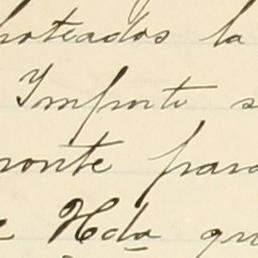 poteados la
Importe s
ronte para
e Hda qu